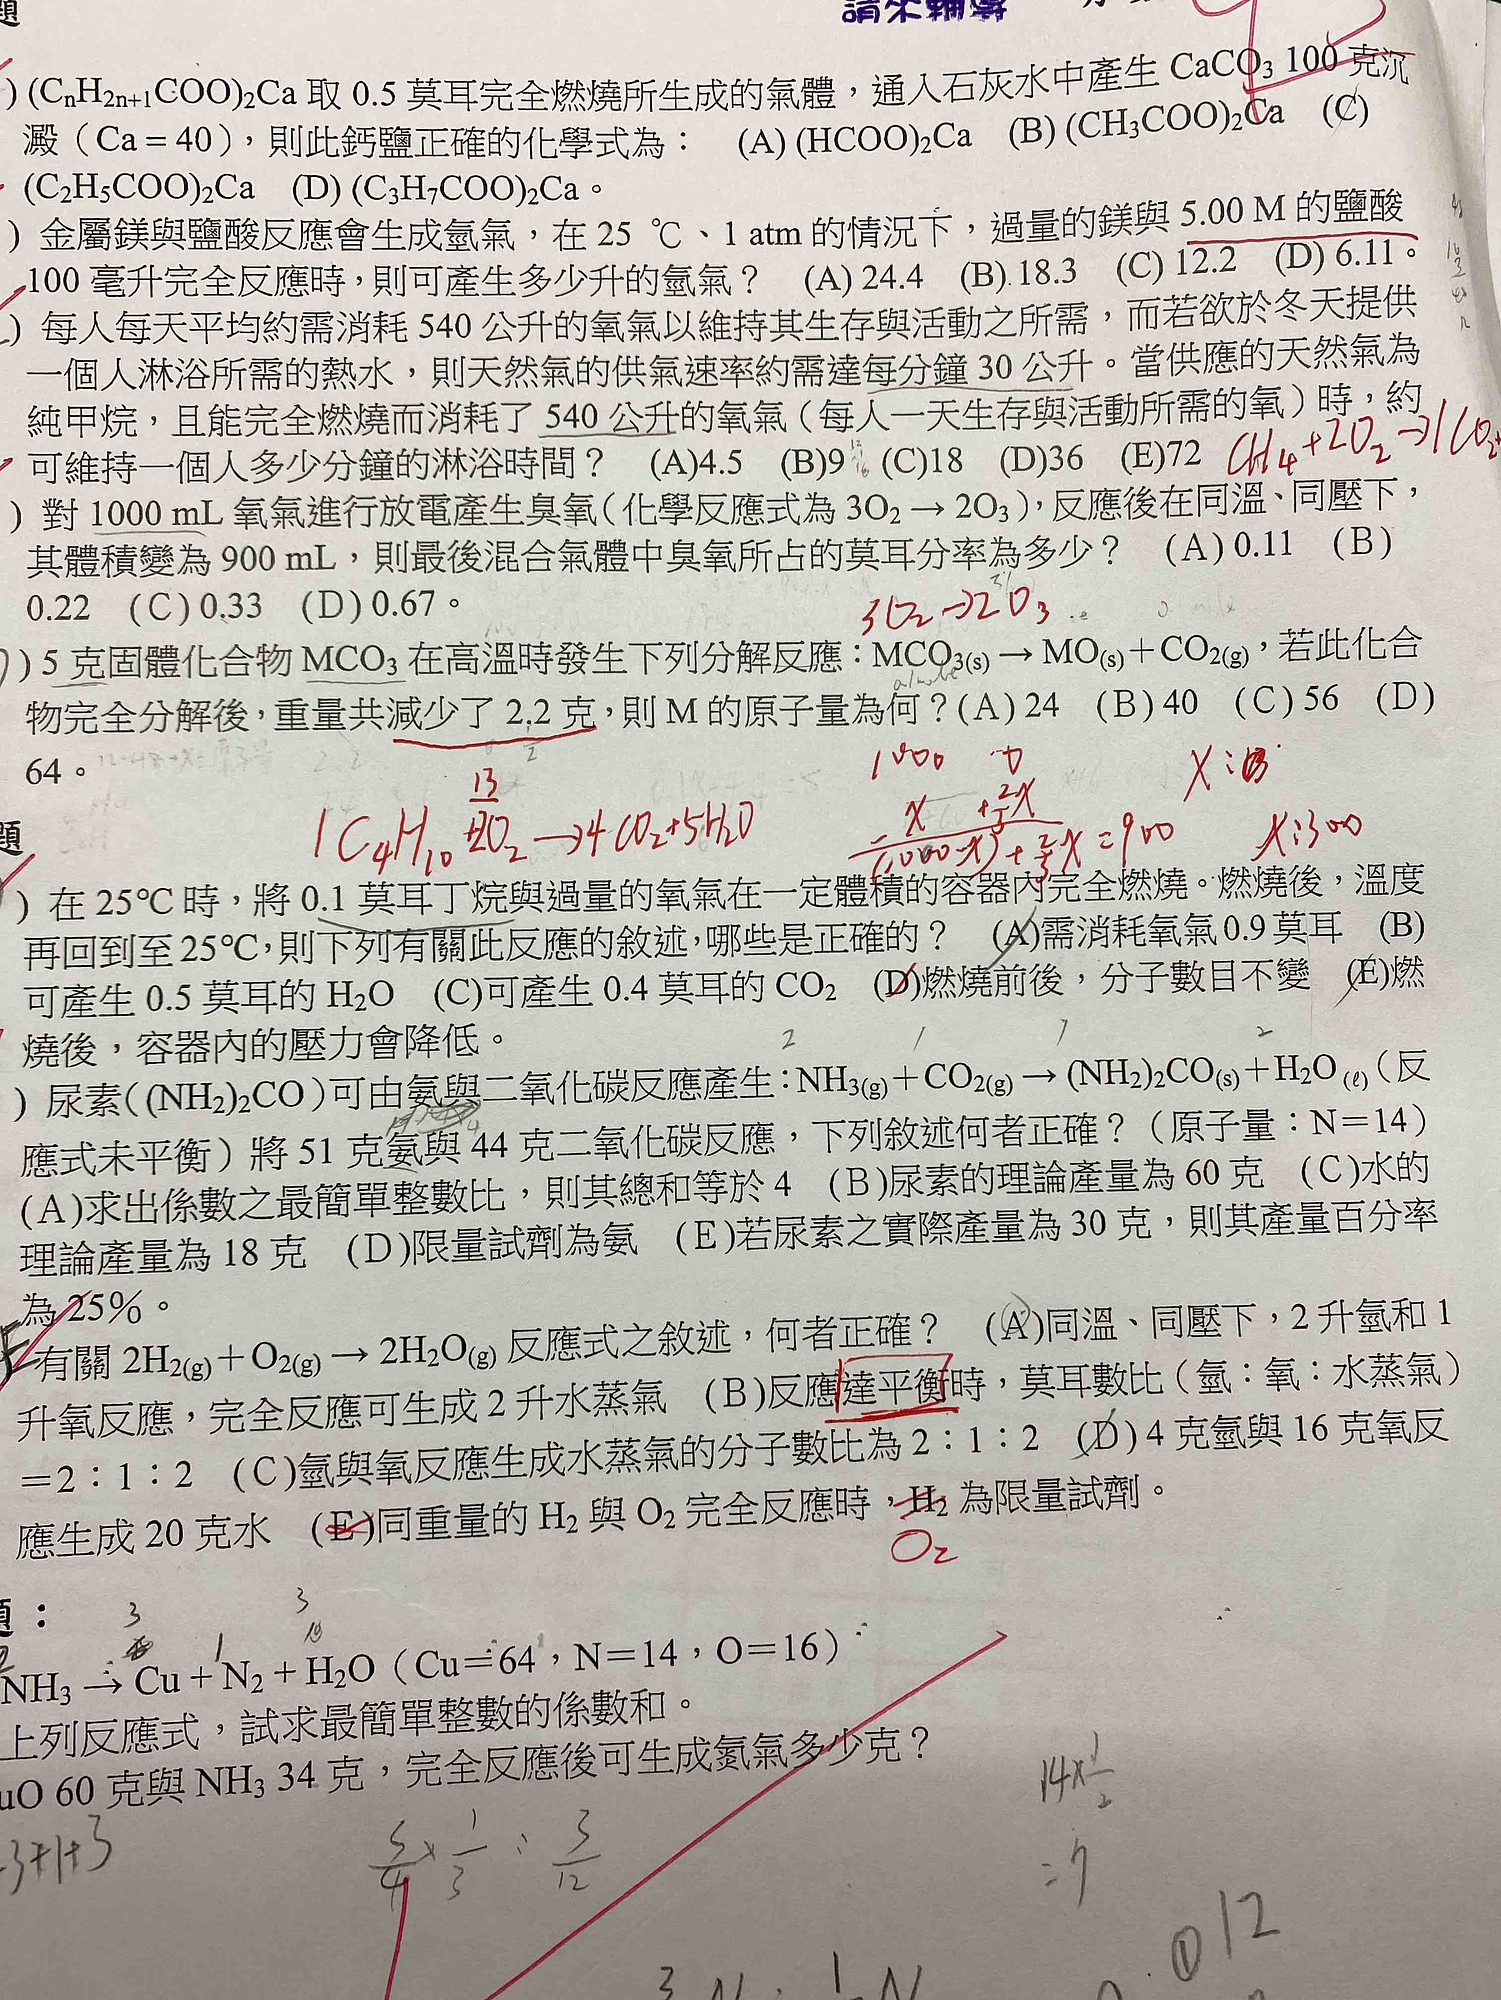 題
請來輔導
) (CnH2n+1COO)2Ca 取 0.5 莫耳完全燃燒所生成的氣體，通入石灰水中產生 CaCO3 100 克沉
澱（Ca＝40），則此鈣鹽正確的化學式為： (A) (HCOO)2Ca (B) (CH3COO)2Ca (C)
(C2H5COO)2Ca (D) (C3H7COO)2Ca。
) 金屬鎂與鹽酸反應會生成氫氣，在 25 ℃、1 atm 的情況下，過量的鎂與 5.00 M 的鹽酸
100 毫升完全反應時，則可產生多少升的氫氣？ (A) 24.4 (B) 18.3 (C) 12.2 (D) 6.11。
) 每人每天平均約需消耗 540 公升的氧氣以維持其生存與活動之所需，而若欲於冬天提供
一個人淋浴所需的熱水，則天然氣的供氣速率約需達每分鐘 30 公升。當供應的天然氣為
純甲烷，且能完全燃燒而消耗了 540 公升的氧氣（每人一天生存與活動所需的氧）時，約
可維持一個人多少分鐘的淋浴時間？ (A)4.5 (B)9 (C)18 (D)36 (E)72 CH4+2O2→1CO2+
) 對 1000 mL 氧氣進行放電產生臭氧（化學反應式為 3O2 → 2O3），反應後在同溫、同壓下，
其體積變為 900 mL，則最後混合氣體中臭氧所占的莫耳分率為多少？ (A) 0.11 (B)
0.22 (C) 0.33 (D) 0.67。
3O2→2O3
) 5 克固體化合物 MCO3 在高溫時發生下列分解反應：MCO3(s) → MO(s)＋CO2(g)，若此化合
物完全分解後，重量共減少了 2.2 克，則 M 的原子量為何？(A) 24 (B) 40 (C) 56 (D)
64。
1000 0
13
x +2/3x
1C4H10 2O2→4CO2+5H2O
(1000-x)+2/3x=900
x:300
題
) 在 25℃ 時，將 0.1 莫耳丁烷與過量的氧氣在一定體積的容器內完全燃燒。燃燒後，溫度
再回到至 25℃，則下列有關此反應的敘述，哪些是正確的？ (A)需消耗氧氣 0.9 莫耳 (B)
可產生 0.5 莫耳的 H2O (C)可產生 0.4 莫耳的 CO2 (D)燃燒前後，分子數目不變 (E)燃
燒後，容器內的壓力會降低。
2 1 1 2
) 尿素（(NH2)2CO）可由氨與二氧化碳反應產生：NH3(g)＋CO2(g) → (NH2)2CO(s)＋H2O(ℓ)（反
應式未平衡）將 51 克氨與 44 克二氧化碳反應，下列敘述何者正確？（原子量：N＝14）
(A)求出係數之最簡單整數比，則其總和等於 4 (B)尿素的理論產量為 60 克 (C)水的
理論產量為 18 克 (D)限量試劑為氨 (E)若尿素之實際產量為 30 克，則其產量百分率
為 25%。
有關 2H2(g)＋O2(g) → 2H2O(g) 反應式之敘述，何者正確？ (A)同溫、同壓下，2 升氫和 1
升氧反應，完全反應可生成 2 升水蒸氣 (B)反應達平衡時，莫耳數比（氫：氧：水蒸氣）
＝2：1：2 (C)氫與氧反應生成水蒸氣的分子數比為 2：1：2 (D) 4 克氫與 16 克氧反
應生成 20 克水 (E)同重量的 H2 與 O2 完全反應時，H2 為限量試劑。
O2
題：
3 1 3
NH3 → Cu＋N2＋H2O（Cu＝64，N＝14，O＝16）
上列反應式，試求最簡單整數的係數和。
uO 60 克與 NH3 34 克，完全反應後可生成氮氣多少克？
3+1+3
3/4×1/3:3/12
14×1/2
=7
① 12